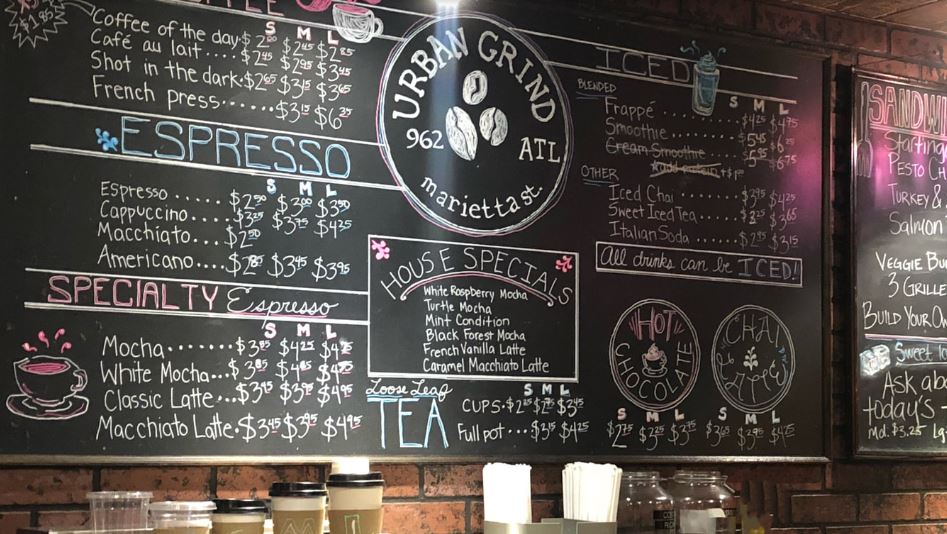 Coffee of the day. $2⁰⁰ $2⁴⁵ $2⁸⁵
Café au lait.... $2⁴⁵ $2⁹⁵ $3⁴⁵
Shot in the dark. $2⁶⁵ $3¹⁵ $3⁶⁵
French press...... $3¹⁵ $6³⁵
ESPRESSO
S M L
Espresso ..... $2⁵⁰ $3⁰⁰ $3⁵⁰
Cappuccino.... $3²⁵ $3⁷⁵ $4²⁵
Macchiato.... $2⁵⁰
Americano.... $3⁴⁵ $3⁹⁵
SPECIALTY Espresso
S M L
Mocha........ $3⁸⁵ $4²⁵
White Mocha... $3⁸⁵
Classic Latte...
Macchiato Latte. $3⁴⁵ $3⁹⁵ $4⁹⁵
URBAN GRIND
962 ATL
marietta st.
HOUSE SPECIALS
White Raspberry Mocha
Turtle Mocha
Mint Condition
Black Forest Mocha
French Vanilla Latte
Caramel Macchiato Latte
Loose Leaf
TEA
S M L
CUPS. $3⁴⁵
Full pot... $3¹⁵ $4²⁵
ICED
BLENDED
S M L
Frappé ........ $4²⁵ $4⁷⁵
Smoothie ........ $5⁴⁵ $6²⁵
Cream Smoothie ..... $5⁹⁵ $6⁷⁵
OTHER
Iced Chai ...... $3⁹⁵ $4²⁵
Sweet Iced Tea .... $3²⁵ $3⁶⁵
Italian Soda ..... $2⁹⁵ $3¹⁵
All drinks can be ICED!
HOT CHOCOLATE
S M L
$2⁷⁵ $3⁷⁵
CHAI LATTE
S M L
$3⁶⁵ $3⁹⁵ $4²⁵
SANDW
Starting
PESTO CH
TURKEY &
Salmon
VEGGIE BU
3 GRILLE
BUILD YOUR OW
Sweet
Ask ab
today's
Md. $3.25